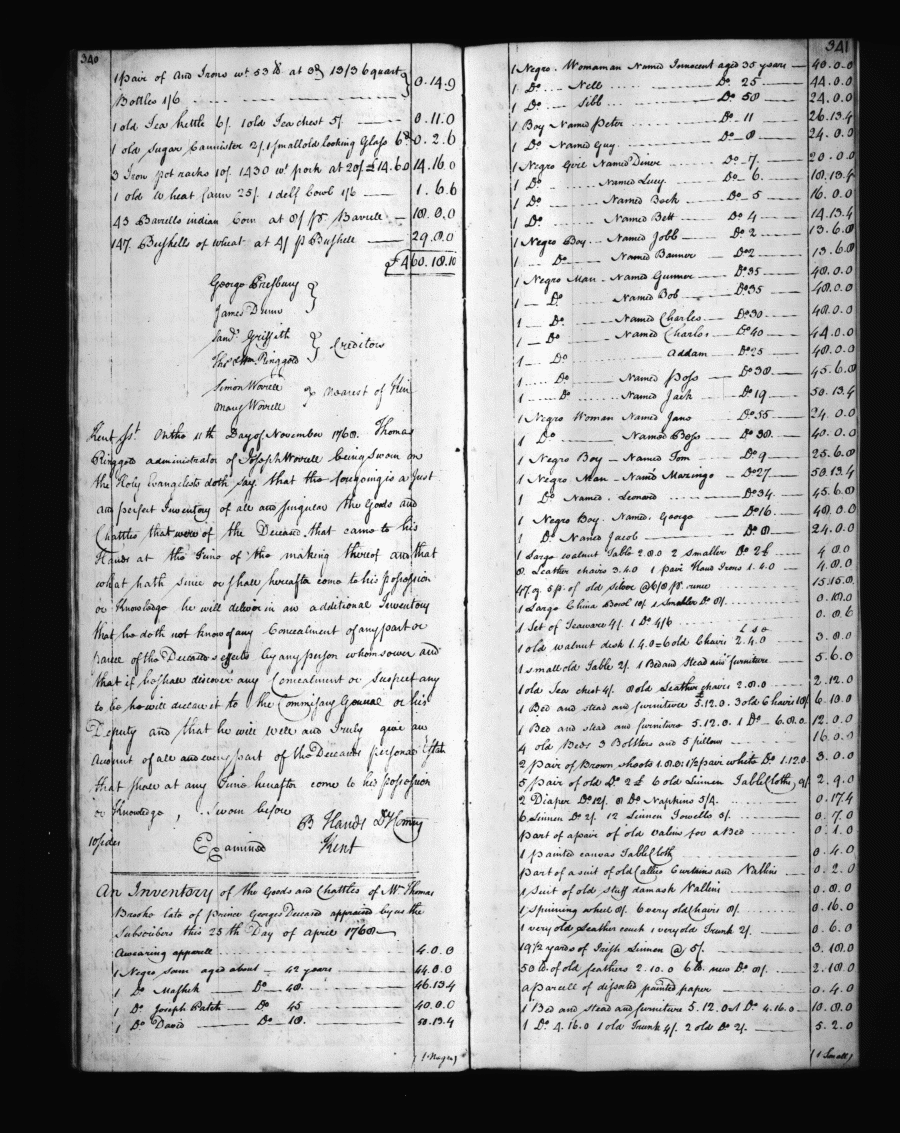 340
1 pair of And Irons wt. 53 lb at 3d 13/3 6 quart
Bottles 1/6 0.14.9
1 old Tea kettle 6/. 1 old Tea chest 5/ 0.11.0
1 old Sugar Cannister 2/. 1 small old looking Glass 6d 0.2.6
3 Iron pot racks 10/. 1430 wt pork at 20/ £14.6.0 14.16.0
1 old wheat fann 25/. 1 delf bowl 1/6 1.6.6
45 Barells indian Corn at 8/ pr. Barell 18.0.0
147. Bushells of wheat at 4/ p Bushell 29.8.0
£460.18.10
George Presbury
James Dunn
Saml. Griffith
Thos. Ringgold
Creditors
Simon Worell
Mary Worell
Nearest of Kin
Kent Sst. On the 11th Day of November 1768. Thomas
Ringgold administrator of Joseph Worrell being Sworn on
the Holy Evangelists doth say that the foregoing is a Just
and perfect Inventory of all and singular the Goods and
Chattles that were of the Deceased that came to his
Hands at the Time of the making thereof and that
what hath since or shall hereafter come to his possession
or Knowledge he will deliver in an additional Inventory
that he doth not know of any Concealment of any part or
parcel of the Deceased's effects by any person whomsoever and
that if he shall discover any Concealment or Suspect any
to be he will declare it to the Commissary General or his
Deputy and that he will well and Truly give an
Account of all and every part of the Deceaseds personal Estate
that shall at any Time hereafter come to his possession
or Knowledge, Sworn before
B Hands Dy Comry
10 sides Examined Kent
An Inventory of the Goods and Chattles of Mr. Thomas
Brooke late of prince Georges Deceased appraised by us the
Subscribers this 25th Day of April 1768
Awearing apparell 4.0.0
1 Negro Sam aged about 42 years 44.0.0
1 Do. Mashek Do. 48. 46.13.4
1 Do. Joseph Patch Do. 45 40.0.0
1 Do. David Do. 18. 50.13.4
(1 Negro)
341
1 Negro. Womaman Named Innocent aged 35 years 40.0.0
1 Do. Nell Do. 25 44.0.0
1 Do. Sibb Do. 50 24.0.0
1 Boy Named Peter Do. 11 26.13.4
1 Do. Named Guy Do. 8 24.0.0
1 Negro Girl Named Diner Do. 7. 20.0.0
1 Do. Named Lucy. Do. 6. 18.13.4
1 Do. Named Beck Do. 5 16.0.0
1 Do. Named Bett Do. 4 14.13.4
1 Negro Boy Named Jobb Do. 2 13.6.8
1 Do. Named Banner Do. 2 13.6.8
1 Negro Man. Named Gunner Do. 35 48.0.0
1 Do. Named Bob Do. 35 48.0.0
1 Do. Named Charles Do. 30 48.0.0
1 Do. Named Charles Do. 40 44.0.0
1 Do. Addam Do. 25 48.0.0
1 Do. Named Poss Do. 38. 45.6.8
1 Do. Named Jack Do. 19 50.13.4
1 Negro Woman Named Jane Do. 55 24.0.0
1 Do. Named Bess Do. 38. 40.0.0
1 Negro Boy Named Tom Do. 9 25.6.8
1 Negro Man Named Maringo Do. 27 50.13.4
1 Do. Named. Leonard Do. 34. 45.6.8
1 Negro Boy. Named. George Do. 16. 48.0.0
1 Do. Named Jacob Do. 8. 24.0.0
1 Large walnut Table 2.0.0 2 smaller Do. 2£ 4.0.0
8. Leather chairs 3.4.0 1 pair Hand Irons 1.4.0 4.8.0
47 oz. 5 p. of old Silver @ 6/8 pr. ounce 15.15.0
1 Large China Bowl 10/ 1 smaller Do. 8/. 0.18.0
1 Set of Teaware 4/. 1 Do. 4/6 0.8.6
1 old walnut desk 1.4.0 6 old Chairs 2.4.0 3.8.0
1 small old Table 2/. 1 Bed and Stead and furniture 5.6.0
1 old Tea chest 4/. 8 old Leather chairs 2.8.0 2.12.0
1 Bed and stead and furniture 5.12.0. 3 old Chairs 18/. 6.10.0
1 Bed and stead and furniture 5.12.0. 1 Do. 6.8.0. 12.0.0
4 old Beds 3 Bolsters and 5 pillows 16.0.0
2 pair of Brown sheets 1.8.0: 1 1/2 pair white Do. 1.12.0 3.0.0
5 pair of old Do. 2£ 6 old Linnen Table Cloths, 9/ 2.9.0
2 Diaper Do. 12/. 8 Do. Napkins 5/4. 0.17.4
6 Linnen Do. 2/. 12 Linnen Towells 5/. 0.7.0
part of a pair of old valins for a Bed 0.1.0
1 painted canvas Table Cloth 0.4.0
part of a suit of old Callico Curtains and Vallins 0.2.0
1 Suit of old stuff damask Vallins 0.8.0
1 spinning wheel 8/. 6 very old Chairs 8/. 0.16.0
1 very old Leather couch 1 very old Trunk 2/. 0.6.0
19 1/2 yards of Irish Linnen @ 5/. 3.18.0
50 lb. of old feathers 2.10.0 6 lb. new Do. 8/. 2.18.0
a parcell of dissated painted paper 0.4.0
1 Bed and Stead and furniture 5.12.0 1 Do. 4.16.0 10.8.0
1 Do. 4.16.0 1 old Trunk 4/. 2 old Do. 2/. 5.2.0
(1 Small)